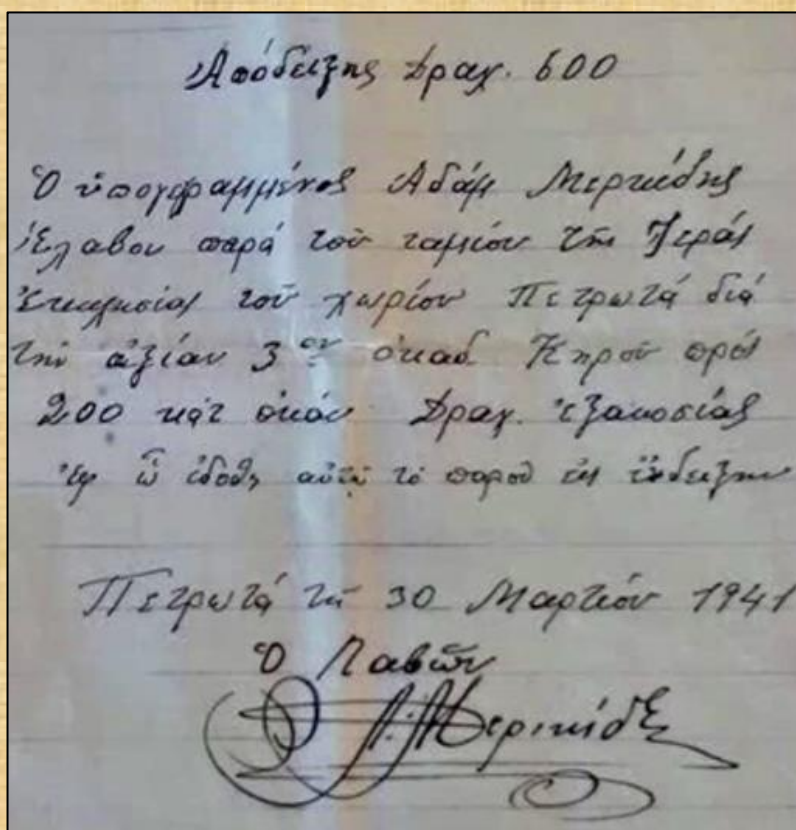 Απόδειξης Δραχ. 600
Ὁ ὑπογεγραμμένος Αδάμ Μερικίδης
Ἔλαβον παρά τοῦ ταμίου τῆς Ἱεράς
Ἐκκλησίας τοῦ χωρίου Πετρωτά διά
τήν ἀξίαν 3ων οκαδ. Κηροῦ πρός
200 κατ οκάν Δραχ. ἑξακοσίας
ἐφ ᾧ ἐδόθη αὐτῷ τό παρόν εἰς ἔνδειξην
Πετρωτά τῆ 30 Μαρτίου 1941
Ὁ Λαβῶν
Α. Μερικίδης